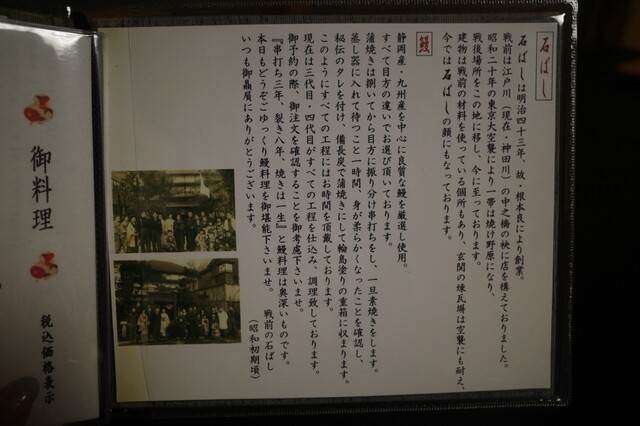 石ばし
石ばしは明治四十三年、故・根本良により創業。
戦前は江戸川（現在・神田川）の中之橋の袂に店を構えておりました。
昭和二十年の東京大空襲により一帯は焼け野原になり、
戦後場所をこの地に移し、今に至っております。
建物は戦前の材料を使っている個所もあり、玄関の煉瓦塀は空襲にも耐え、
今では石ばしの顔にもなっております。
鰻
静岡産・九州産を中心に良質な鰻を厳選し使用。
すべて目方の違いでお選び頂いております。
蒲焼きは捌いてから目方に振り分け串打ちをし、一旦素焼きをします。
蒸し器に入れて待つこと一時間、身が柔らかくなったことを確認し、
秘伝のタレを付け、備長炭で蒲焼きにして輪島塗りの重箱に収まります。
このようにすべての工程にはお時間を頂戴しております。
現在は三代目・四代目がすべての工程を仕込み、調理致しております。
御予約の際、御注文を確認することを御考慮下さいませ。
『串打ち三年、裂き八年、焼きは一生』と鰻料理は奥深いものです。
本日もどうぞごゆっくり鰻料理を御堪能下さいませ。
いつも御贔屓にありがとうございます。
戦前の石ばし
（昭和初期頃）
御料理
税込価格表示